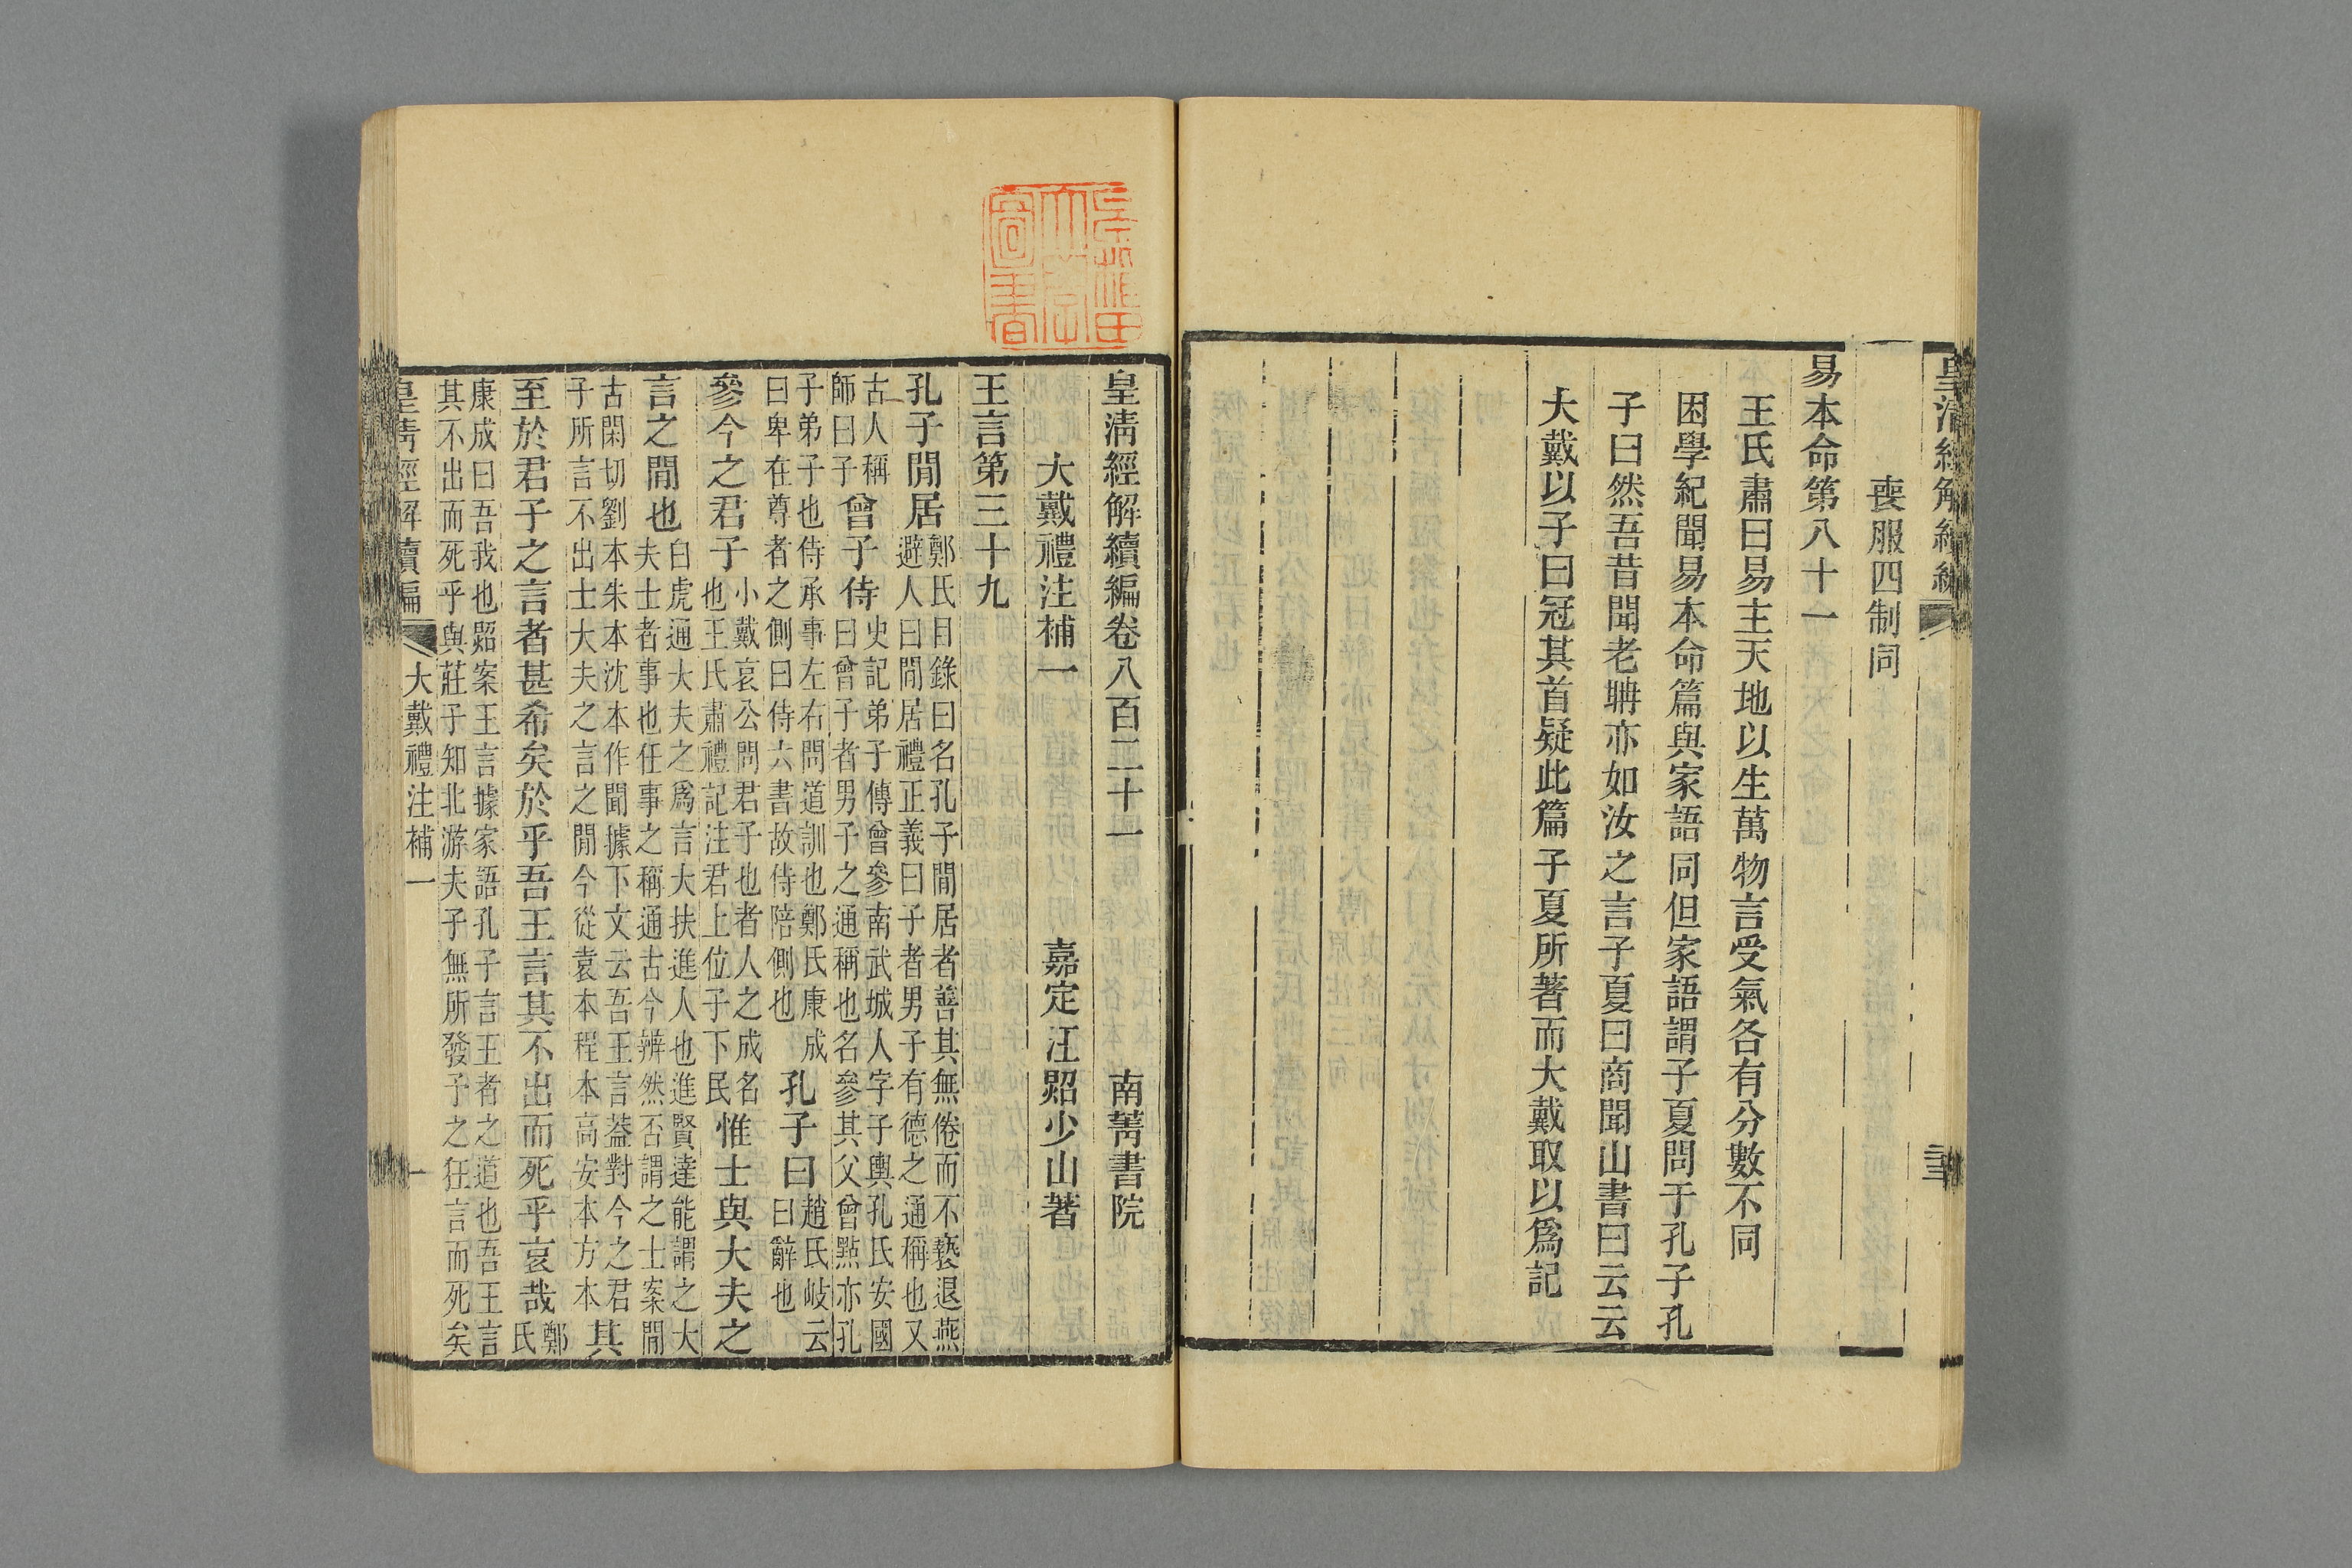 皇清經解續編
喪服四制同
易本命第八十一
王氏肅曰易主天地以生萬物言受氣各有分數不同
困學紀聞易本命篇與家語同但家語謂子夏問于孔子孔
子曰然吾昔聞老聃亦如汝之言子夏曰商聞山書曰云云
大戴以子曰冠其首疑此篇子夏所著而大戴取以爲記
皇清經解續編卷八百二十一
南菁書院
大戴禮注補一
嘉定汪照少山著
王言第三十九
孔子閒居鄭氏目錄曰名孔子閒居者善其無倦而不褻退燕
避人曰閒居禮正義曰子者男子有德之通稱也又
古人稱
師曰子曾子侍史記弟子傳曾參南武城人字子輿孔氏安國
曰曾子者男子之通稱也名參其父曾點亦孔
子弟子也侍承事左右問道訓也鄭氏康成
曰卑在尊者之側曰侍六書故侍陪側也孔子曰趙氏岐云
曰辭也
參今之君子小戴哀公問君子也者人之成名
也王氏肅禮記注君上位子下民惟士與大夫之
言之閒也白虎通大夫之爲言大扶進人也進賢達能謂之大
夫士者事也任事之稱通古今辨然否謂之士案閒
古閑切劉本朱本沈本作聞據下文云吾王言蓋對今之君
子所言不出士大夫之言之閒今從袁本程本高安本方本其
至於君子之言者甚希矣於乎吾王言其不出而死乎哀哉鄭
氏
康成曰吾我也照案王言據家語孔子言王者之道也吾王言
其不出而死乎與莊子知北游夫子無所發予之狂言而死矣
皇清經解續編
大戴禮注補一
一